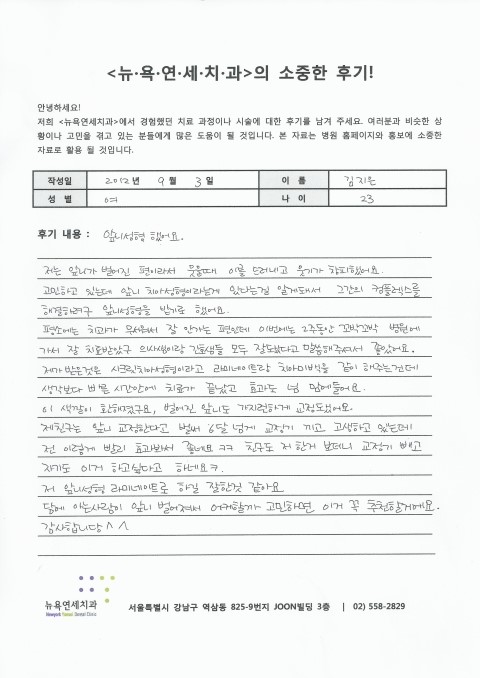 <뉴·욕·연·세·치·과>의 소중한 후기!
안녕하세요!
저희 <뉴욕연세치과>에서 경험했던 치료 과정이나 시술에 대한 후기를 남겨 주세요. 여러분과 비슷한 상
황이나 고민을 겪고 있는 분들에게 많은 도움이 될 것입니다. 본 자료는 병원 홈페이지와 홍보에 소중한
자료로 활용 될 것입니다.
작성일 2012년 9월 3일 이 름 김지은
성 별 여 나 이 23
후기 내용 : 앞니성형 했어요.
저는 앞니가 벌어진 편이라서 웃을때 이를 드러내고 웃기가 창피했어요.
고민하고 있는데 앞니 치아성형이라는게 있다는걸 알게돼서 그간의 컴플렉스를
해결하려구 앞니성형을 받기로 했어요.
평소에는 치과가 무서워서 잘 안가는 편인데 이번에는 2주동안 꼬박꼬박 병원에
가서 잘 치료받았구 의사쌤이랑 간호쌤들 모두 잘해준다고 말씀해주셔서 좋았어요.
제가 받은것은 시크릿치아성형이라고 라미네이트랑 치아미백을 같이 해주는건데
생각보다 빠른 시간안에 치료가 끝났고 효과도 넘 맘에들어요.
이 색깔이 환해졌구요, 벌어진 앞니도 가지런하게 교정도됐어요.
제친구는 앞니 교정한다고 벌써 6달 넘게 교정기 끼고 고생하고 있는데
전 이렇게 빨리 효과봐서 좋네요 ㅋㅋ 친구도 저 한거 보더니 교정기 빼고
자기도 이거 하고싶다고 하네요ㅋ
저 앞니성형 라미네이트로 하길 잘한것 같아요
담에 아는사람이 앞니 벌어져서 어케할까 고민하면 이거 꼭 추천할거에요.
감사합니당^^
뉴욕연세치과
Newyork Yonsei Dental Clinic
서울특별시 강남구 역삼동 825-9번지 JOON빌딩 3층 | 02) 558-2829